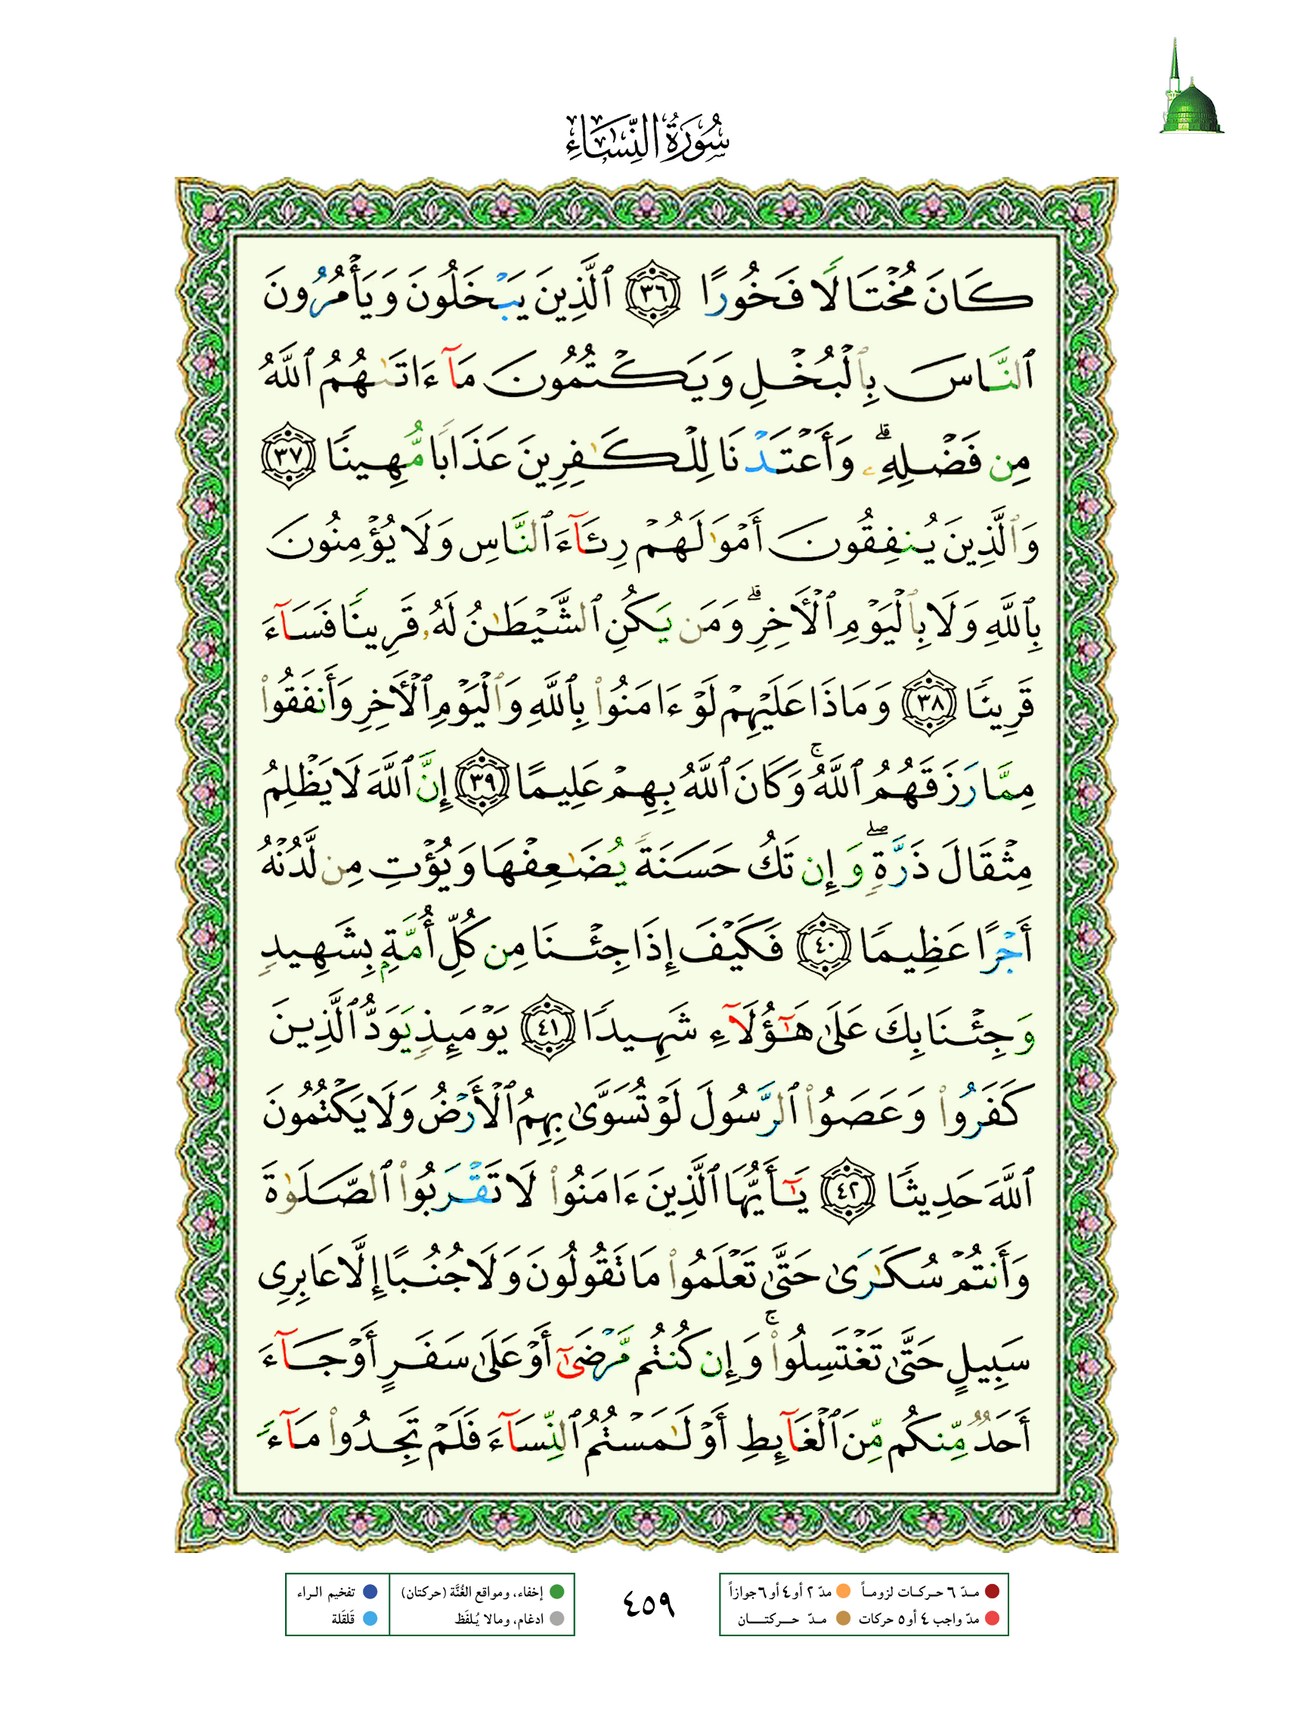 سُورَةُ النِّسَاءِ
كَانَ مُخْتَالًا فَخُورًا ٣٦ ٱلَّذِينَ يَبْخَلُونَ وَيَأْمُرُونَ
ٱلنَّاسَ بِٱلْبُخْلِ وَيَكْتُمُونَ مَآ ءَاتَىٰهُمُ ٱللَّهُ
مِن فَضْلِهِۦ ۗ وَأَعْتَدْنَا لِلْكَٰفِرِينَ عَذَابًا مُّهِينًا ٣٧
وَٱلَّذِينَ يُنفِقُونَ أَمْوَٰلَهُمْ رِئَآءَ ٱلنَّاسِ وَلَا يُؤْمِنُونَ
بِٱللَّهِ وَلَا بِٱلْيَوْمِ ٱلْأَخِرِ ۗ وَمَن يَكُنِ ٱلشَّيْطَٰنُ لَهُۥ قَرِينًا فَسَآءَ
قَرِينًا ٣٨ وَمَاذَا عَلَيْهِمْ لَوْ ءَامَنُوا۟ بِٱللَّهِ وَٱلْيَوْمِ ٱلْأَخِرِ وَأَنفَقُوا۟
مِمَّا رَزَقَهُمُ ٱللَّهُ ۚ وَكَانَ ٱللَّهُ بِهِمْ عَلِيمًا ٣٩ إِنَّ ٱللَّهَ لَا يَظْلِمُ
مِثْقَالَ ذَرَّةٍ ۖ وَإِن تَكُ حَسَنَةً يُضَٰعِفْهَا وَيُؤْتِ مِن لَّدُنْهُ
أَجْرًا عَظِيمًا ٤٠ فَكَيْفَ إِذَا جِئْنَا مِن كُلِّ أُمَّةٍۭ بِشَهِيدٍ
وَجِئْنَا بِكَ عَلَىٰ هَٰٓؤُلَآءِ شَهِيدًا ٤١ يَوْمَئِذٍ يَوَدُّ ٱلَّذِينَ
كَفَرُوا۟ وَعَصَوُا۟ ٱلرَّسُولَ لَوْ تُسَوَّىٰ بِهِمُ ٱلْأَرْضُ وَلَا يَكْتُمُونَ
ٱللَّهَ حَدِيثًا ٤٢ يَٰٓأَيُّهَا ٱلَّذِينَ ءَامَنُوا۟ لَا تَقْرَبُوا۟ ٱلصَّلَوٰةَ
وَأَنتُمْ سُكَٰرَىٰ حَتَّىٰ تَعْلَمُوا۟ مَا تَقُولُونَ وَلَا جُنُبًا إِلَّا عَابِرِى
سَبِيلٍ حَتَّىٰ تَغْتَسِلُوا۟ ۚ وَإِن كُنتُم مَّرْضَىٰٓ أَوْ عَلَىٰ سَفَرٍ أَوْ جَآءَ
أَحَدٌ مِّنكُم مِّنَ ٱلْغَآئِطِ أَوْ لَٰمَسْتُمُ ٱلنِّسَآءَ فَلَمْ تَجِدُوا۟ مَآءً
مدّ ٦ حركات لزوماً مدّ ٢ أو ٤ أو ٦ جوازاً
مدّ واجب ٤ أو ٥ حركات مدّ حركتان
٤٥٩
إخفاء، ومواقع الغُنَّة (حركتان) تفخيم الراء
ادغام، ومالا يُلفَظ قَلقَلة